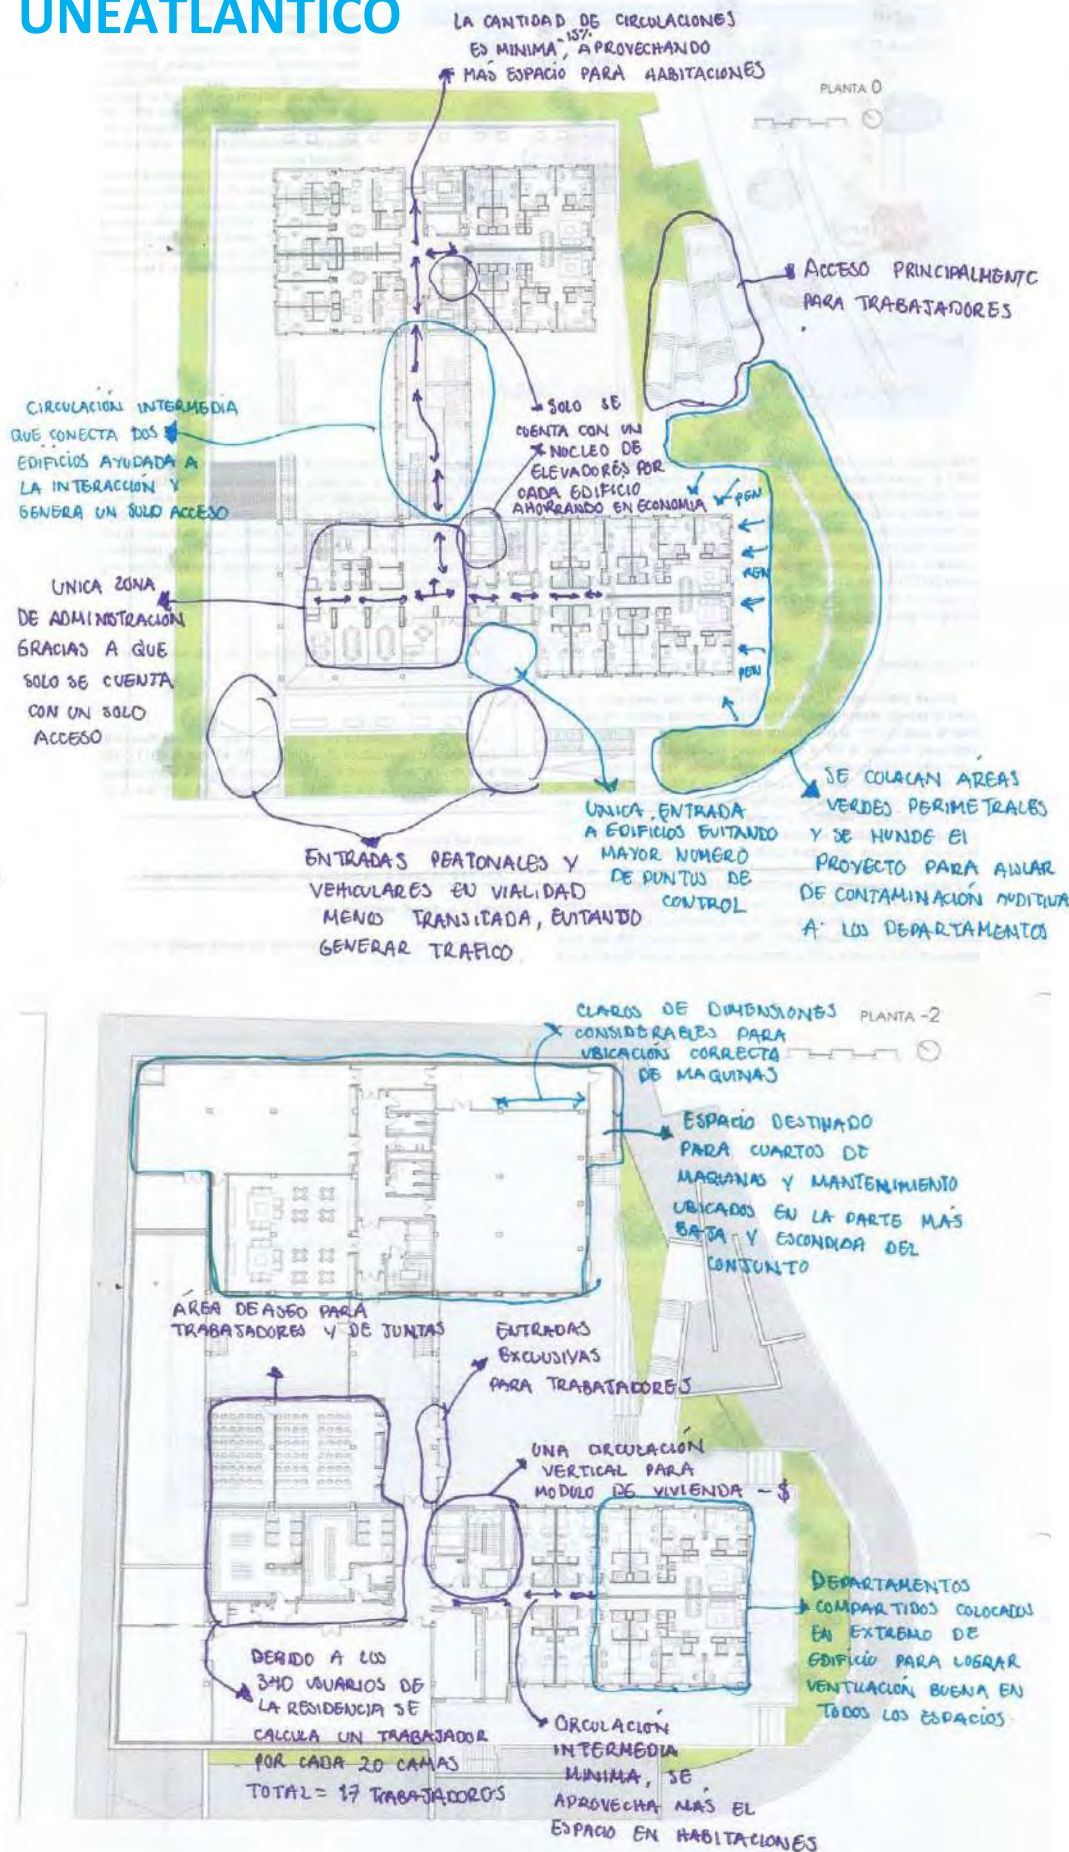 UNEATLANTICO
LA CANTIDAD DE CIRCULACIONES
ES MINIMA -15%, APROVECHANDO
MAS ESPACIO PARA HABITACIONES
PLANTA 0
ACCESO PRINCIPALMENTE
PARA TRABAJADORES
CIRCULACIÓN INTERMEDIA
QUE CONECTA DOS
EDIFICIOS AYUDADA A
LA INTERACCIÓN Y
GENERA UN SOLO ACCESO
SOLO SE
CUENTA CON UN
NUCLEO DE
ELEVADORES POR
CADA EDIFICIO
AHORRANDO EN ECONOMIA
PEN
PEN
PEN
UNICA ZONA
DE ADMINISTRACIÓN
GRACIAS A QUE
SOLO SE CUENTA
CON UN SOLO
ACCESO
ENTRADAS PEATONALES Y
VEHICULARES EN VIALIDAD
MENOS TRANSITADA, EVITANDO
GENERAR TRAFICO
UNICA ENTRADA
A EDIFICIOS EVITANDO
MAYOR NUMERO
DE PUNTOS DE
CONTROL
SE COLACAN AREAS
VERDES PERIMETRALES
Y SE HUNDE El
PROYECTO PARA AISLAR
DE CONTAMINACIÓN AUDITIVA
A LOS DEPARTAMENTOS
CLAROS DE DIMENSIONES
CONSIDERABLES PARA
UBICACIÓN CORRECTA
DE MAQUINAS
PLANTA -2
ESPACIO DESTINADO
PARA CUARTOS DE
MAQUINAS Y MANTENIMIENTO
UBICADOS EN LA PARTE MAS
BAJA Y ESCONDIDA DEL
CONJUNTO
AREA DE ASEO PARA
TRABAJADORES Y DE JUNTAS
ENTRADAS
EXCLUSIVAS
PARA TRABAJADORES
UNA CIRCULACIÓN
VERTICAL PARA
MODULO DE VIVIENDA - $
DEPARTAMENTOS
COMPARTIDOS COLOCADOS
EN EXTREMO DE
EDIFICIO PARA LOGRAR
VENTILACIÓN BUENA EN
TODOS LOS ESPACIOS
DEBIDO A LOS
340 USUARIOS DE
LA RESIDENCIA SE
CALCULA UN TRABAJADOR
POR CADA 20 CAMAS
TOTAL = 17 TRABAJADORES
CIRCULACIÓN
INTERMEDIA
MINIMA, SE
APROVECHA MAS EL
ESPACIO EN HABITACIONES